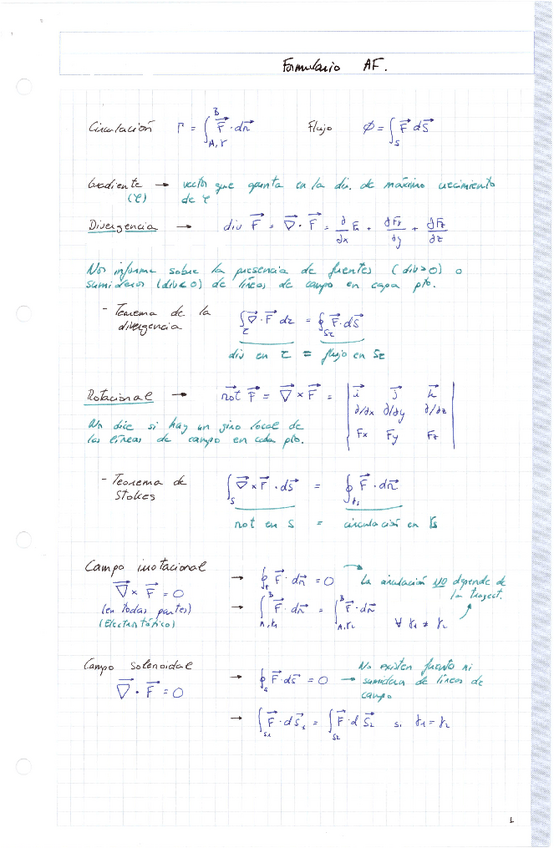 Formulario AF.
Circulación Γ = ∫_{A,γ}^{B} F⃗ · dr⃗ Flujo Φ = ∫_S F⃗ dS⃗
Gradiente → vector que apunta en la dir. de máximo crecimiento
(φ) de φ
Divergencia → div F⃗ = ∇⃗ · F⃗ = ∂/∂x Fx + ∂Fy/∂y + ∂Fz/∂z
Nos informa sobre la presencia de fuentes (div>0) o
sumideros (div<0) de líneas de campo en capa pto.
- Teorema de la
divergencia
∫_τ ∇⃗ · F⃗ dτ = ∮_{Sτ} F⃗ · dS⃗
div en τ = flujo en Sτ
Rotacional → rot⃗ F⃗ = ∇⃗ × F⃗ = | i⃗ j⃗ k⃗
∂/∂x ∂/∂y ∂/∂z
Fx Fy Fz |
Nos dice si hay un giro local de
las líneas de campo en cada pto.
- Teorema de
Stokes
∫_S ∇⃗ × F⃗ · dS⃗ = ∮_{γs} F⃗ · dr⃗
rot en S = circulación en γs
Campo irrotacional
∇⃗ × F⃗ = 0
(en todas partes)
(Electrostático)
→ ∮_γ F⃗ · dr⃗ = 0
La circulación NO depende de
la trayect.
→ ∫_{A,γ1}^{B} F⃗ · dr⃗ = ∫_{A,γ2}^{B} F⃗ · dr⃗ ∀ γ1 ≠ γ2
Campo solenoidal
∇⃗ · F⃗ = 0
→ ∮_S F⃗ · dS⃗ = 0 → No existen fuente ni
sumidero de líneas de
campo
→ ∫_{S1} F⃗ · dS⃗1 = ∫_{S2} F⃗ · dS⃗2 si γ1 = γ2